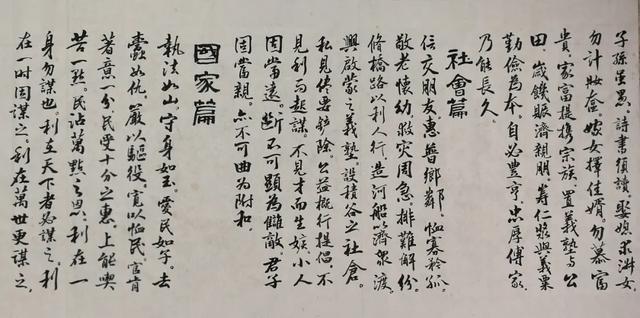 子孫虽愚，詩書須讀。娶媳求淑女，
勿計妝奁。嫁女擇佳婿，勿慕富
貴。家富提携宗族，置義塾与公
田，歲饑賑濟親朋，筹仁漿與義粟。
勤儉為本，自必豐亨，忠厚傳家，
乃能長久。
社會篇
信交朋友，惠普鄉鄰。恤寡矜孤，
敬老懷幼。救灾周急，排難解纷。
修橋路以利人行，造河船以濟衆渡。
興啟蒙之義塾，設積谷之社倉。
私見侭要鏟除，公益概行提倡。不
見利而起謀，不見才而生嫉。小人
固當遠，断不可顯為讎敵。君子
固當親，亦不可曲为附和
國家篇
執法如山，守身如玉，愛民如子，去
蠹如仇。嚴以驅役，寬以恤民。官肯
著意一分，民受十分之惠。上能喫
苦一點，民沾萬點之恩。利在一
身勿謀也，利在天下者必謀之。利
在一时固謀之，利在萬世更謀之。